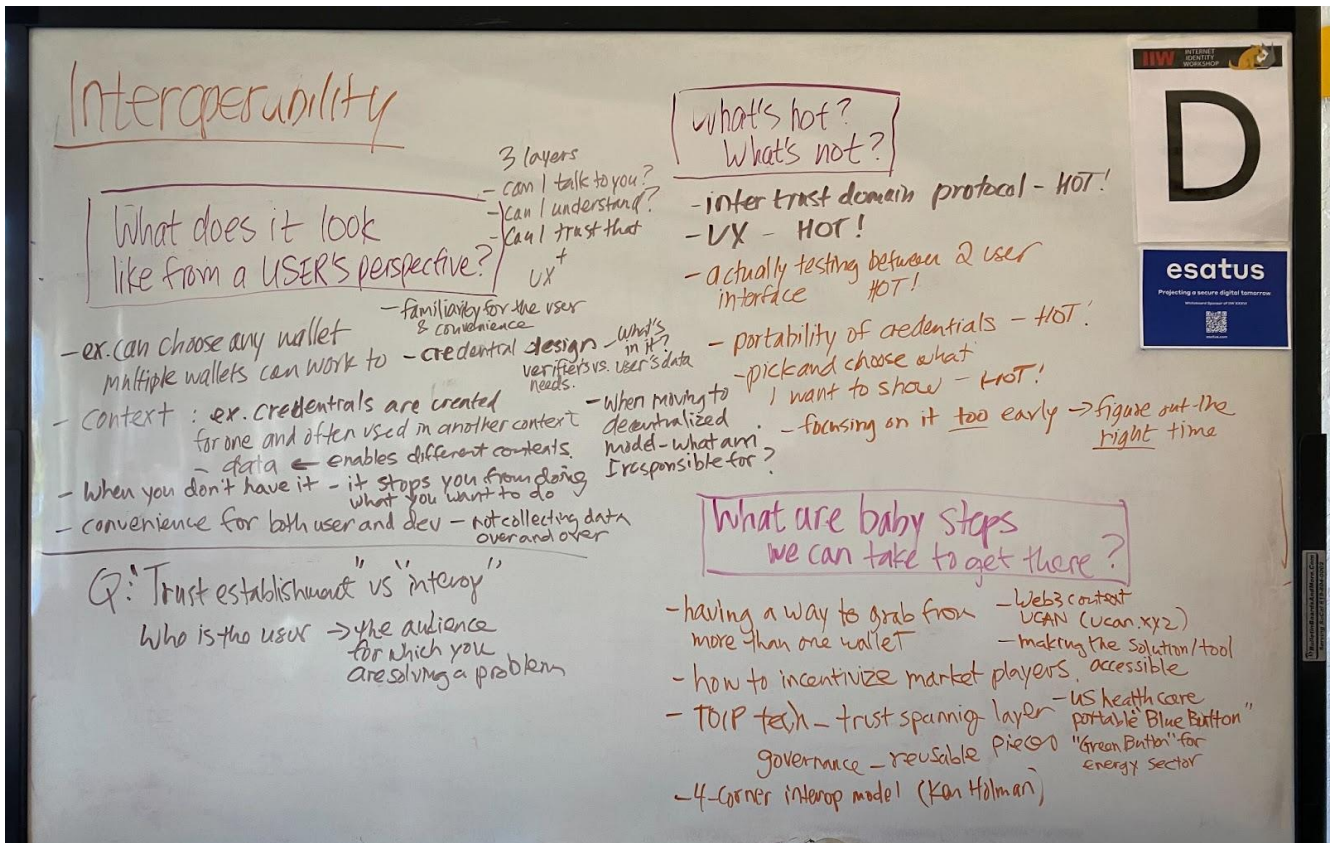 Interoperability
What does it look
like from a USER's perspective?
3 layers
- can I talk to you?
- can I understand?
- can I trust that
UX+
- familiarity for the user
& convenience
- ex. can choose any wallet
multiple wallets can work to
- credential design
- what's
in it?
verifiers vs. user's data
needs.
- context : ex. credentials are created
for one and often used in another context
- data ← enables different contexts.
- when moving to
decentralized
model - what am
I responsible for?
- when you don't have it - it stops you from doing
what you want to do
- convenience for both user and dev - not collecting data
over and over
Q: "Trust establishment" vs "interop"
Who is the user → the audience
for which you
are solving a problem
What's hot?
What's not?
- inter trust domain protocol - HOT!
- UX - HOT!
- actually testing between 2 user
interface HOT!
- portability of credentials - HOT!
- pick and choose what
I want to show - HOT!
- focusing on it too early → figure out the
right time
What are baby steps
we can take to get there?
- having a way to grab from
more than one wallet
- Web3 context
UCAN (ucan.xyz)
- making the solution/tool
accessible
- how to incentivize market players.
- TOIP tech - trust spannig layer
governance - reusable pieces
- US health care
portable "Blue Button"
"Green Button" for
energy sector
- 4-corner interop model (Ken Holman)
IIW INTERNET
IDENTITY
WORKSHOP
D
esatus
Projecting a secure digital tomorrow
esatus.com